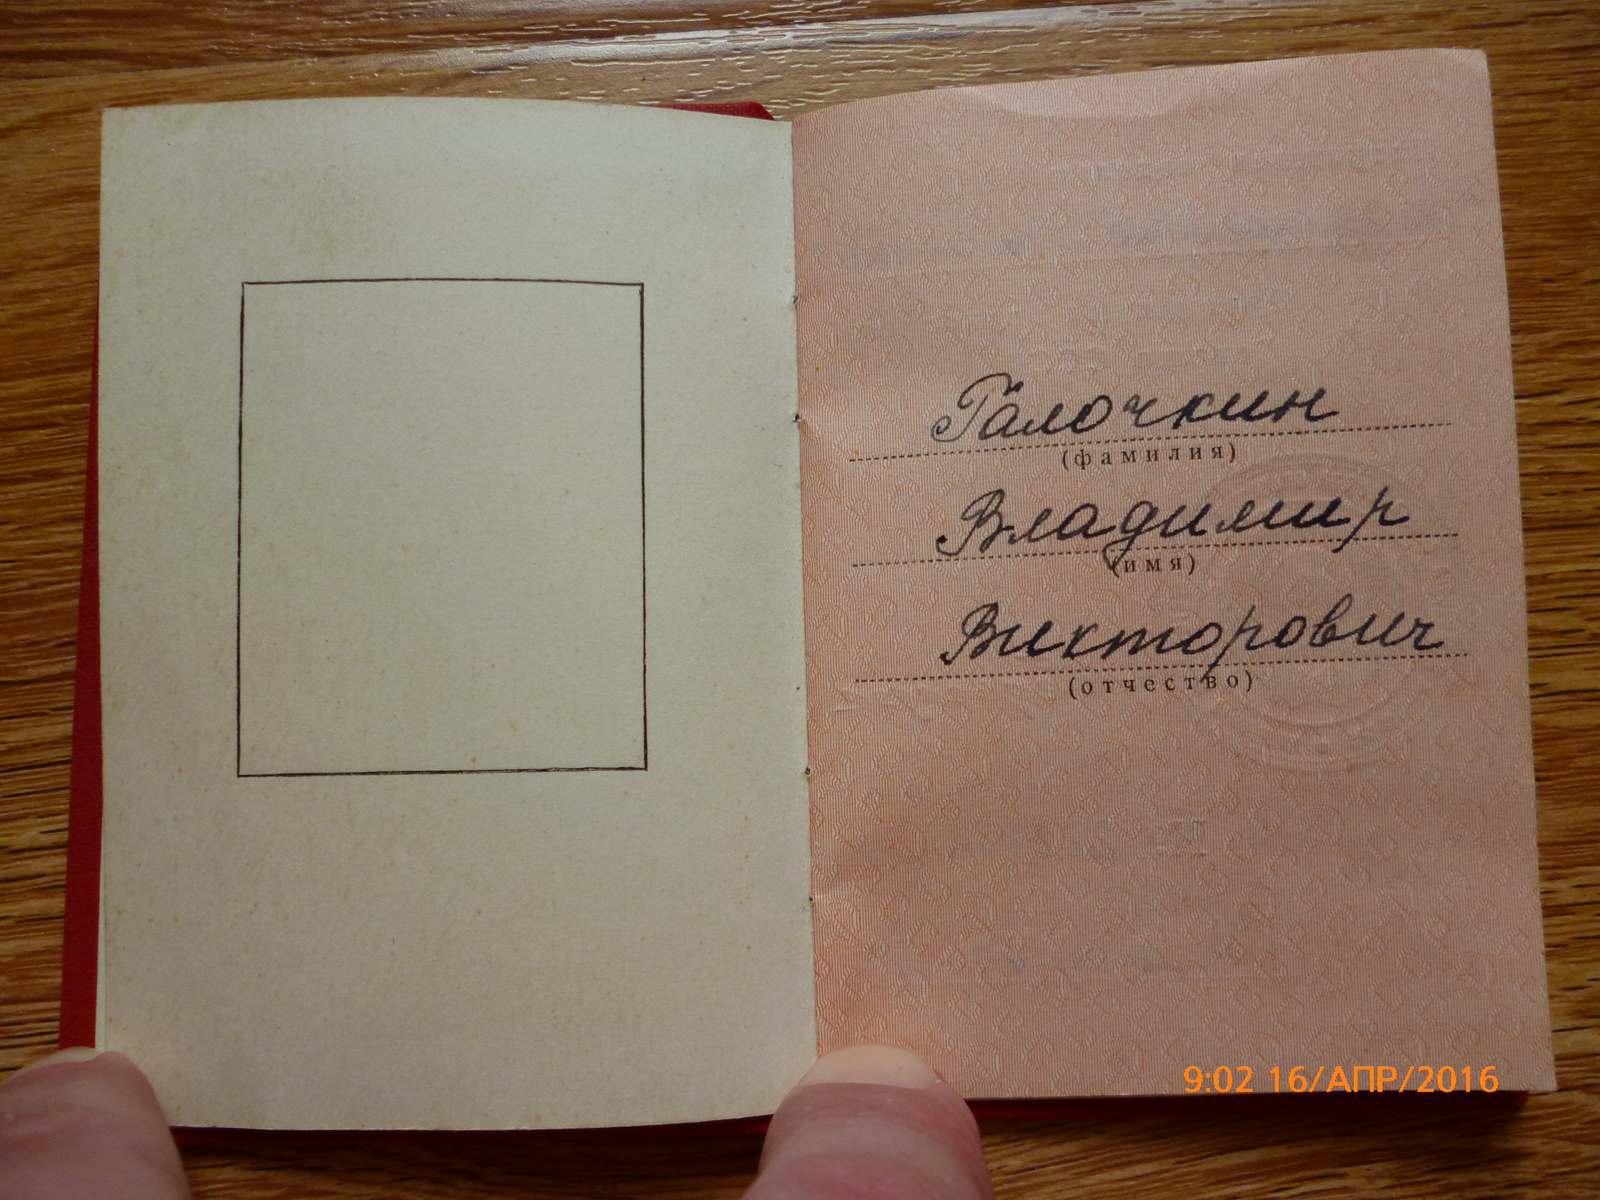 Галочкин
(фамилия)
Владимир
(имя)
Викторович
(отчество)
9:02 16/АПР/2016